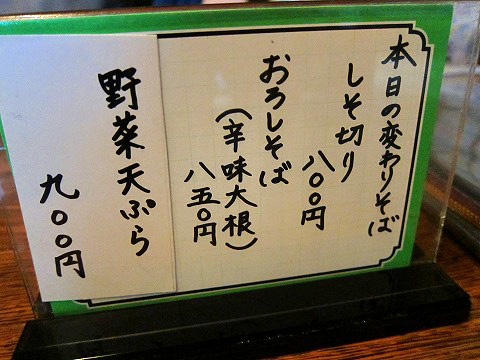 本日の変わりそば
しそ切り
八〇〇円
おろしそば
（辛味大根）
八五〇円
野菜天ぷら
九〇〇円